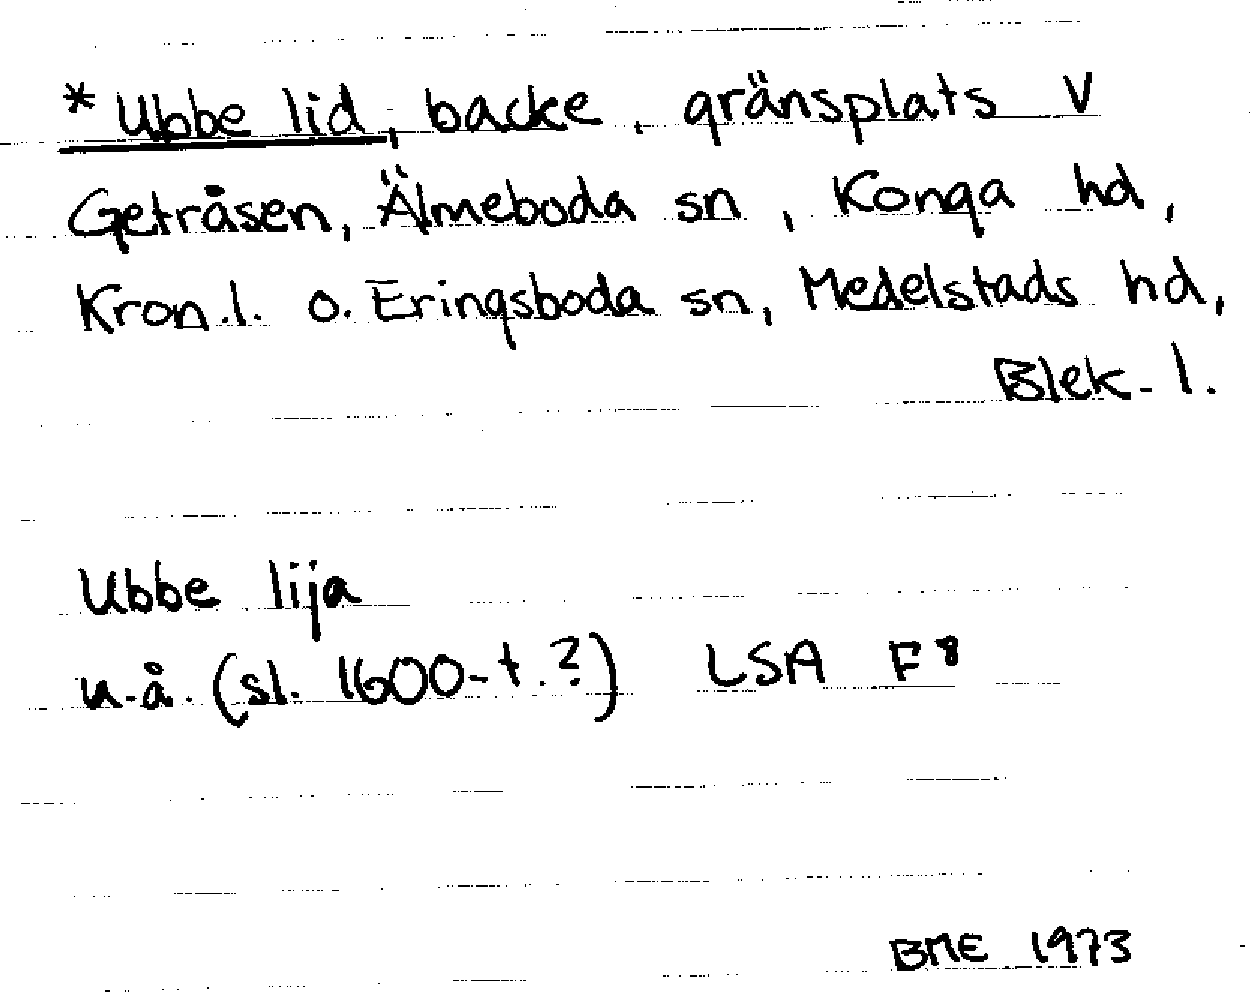 *Ubbe lid, backe, gränsplats V
Getråsen, Älmeboda sn, Konga hd,
Kron.l. o. Eringsboda sn, Medelstads hd,
Blek. l.
Ubbe lija
u.å. (sl. 1600-t.?) LSA F⁸
BME 1973